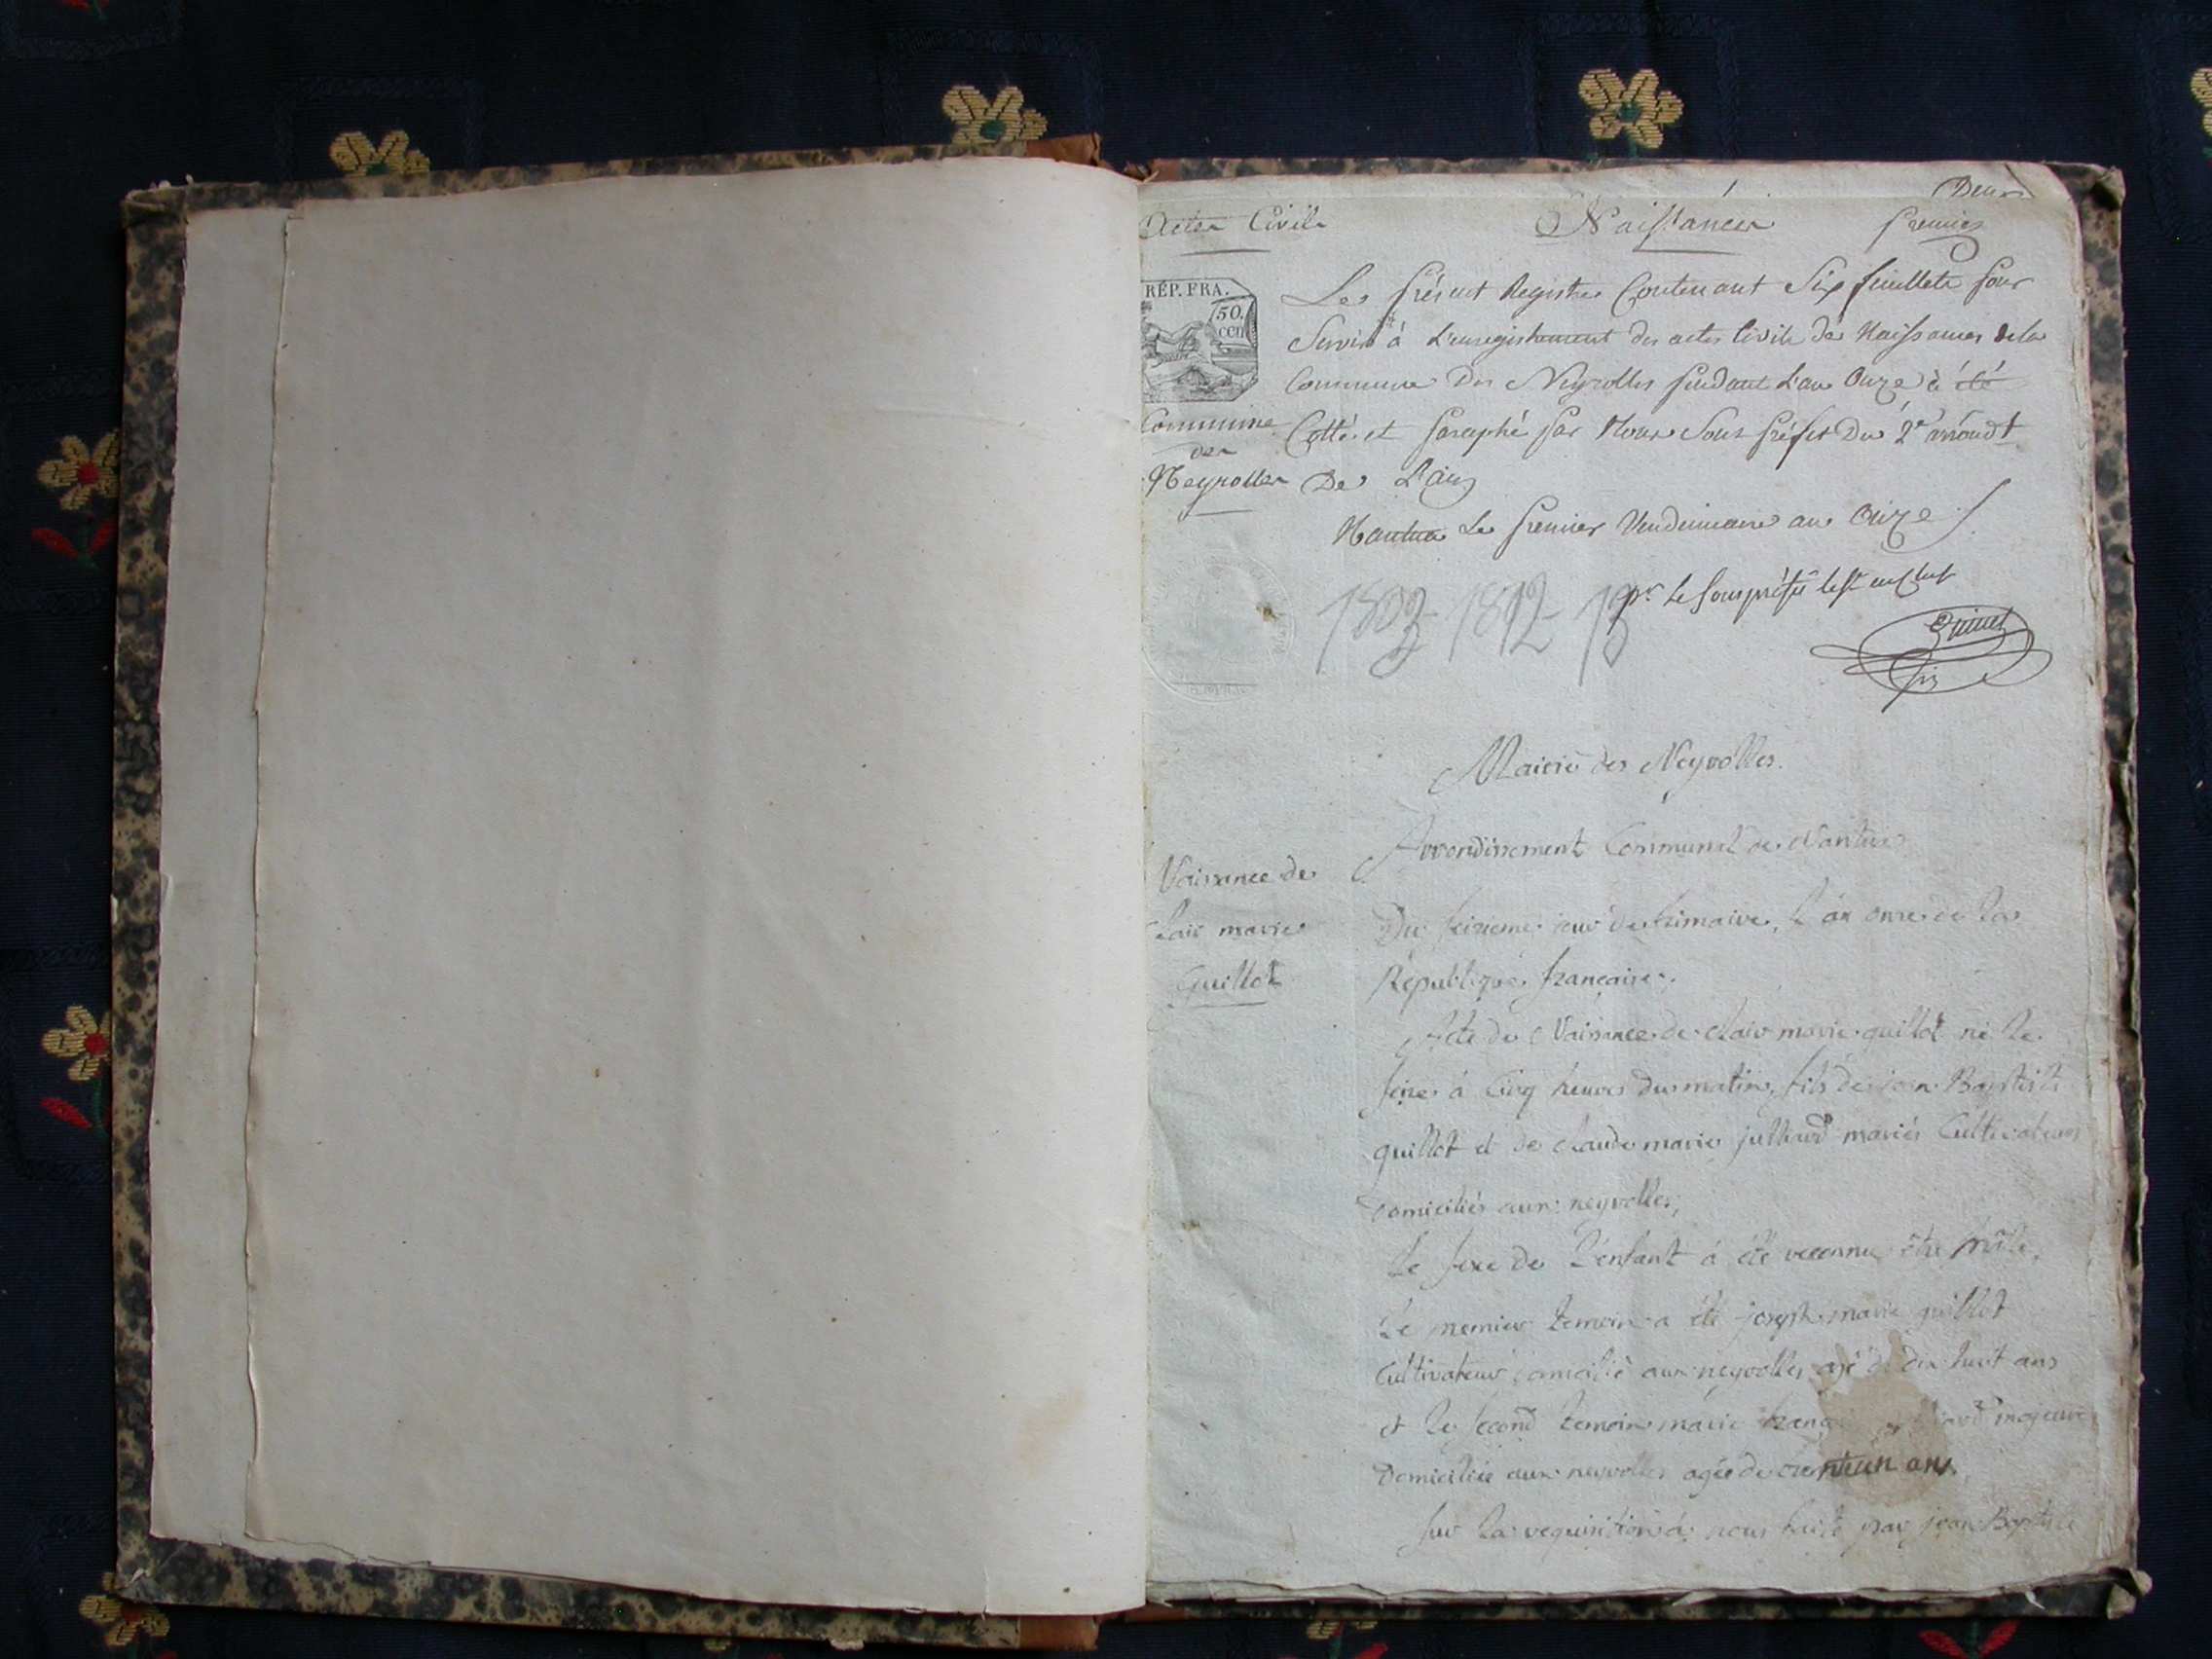 Deux
Actes Civils
Naissances
premier
RÉP. FRA.
50.
cen
Le présent Registre Contenant Six feuillets pour
Servir à L'enregistrement des actes Civils de Naissances de la
Commune Des Neyrolles pendant L'an Onze à été
Cotté et paraphé par Nous Sous préfet Du 2e arrondt
De L'ain
Commune
des
Neyrolles
Nantua Le premier Vendemiaire an Onze
1802 1812 13
pr le Sous préfet
Mairie des Neyrolles.
Arrondissement Communal de Nantua
Naissance de
Clair marie
Guillot
Du seizieme jour de frimaire, l'an onze de la
République française.
Acte de Naissance de Clair marie guillot né le
seize à Cinq heures du matin, fils de jean Baptiste
guillot et de claude marie julliard mariés Cultivateurs
domiciliés aux neyrolles,
Le sexe de l'enfant à été reconnu être mâle,
Le premier temoin a été joseph marie guillot
Cultivateur domicilié aux neyrolles agé de dix huit ans
et le second temoin marie majeure
domiciliée aux neyrolles agée de trente un ans
sur la requisition à nous faite par jean Baptiste